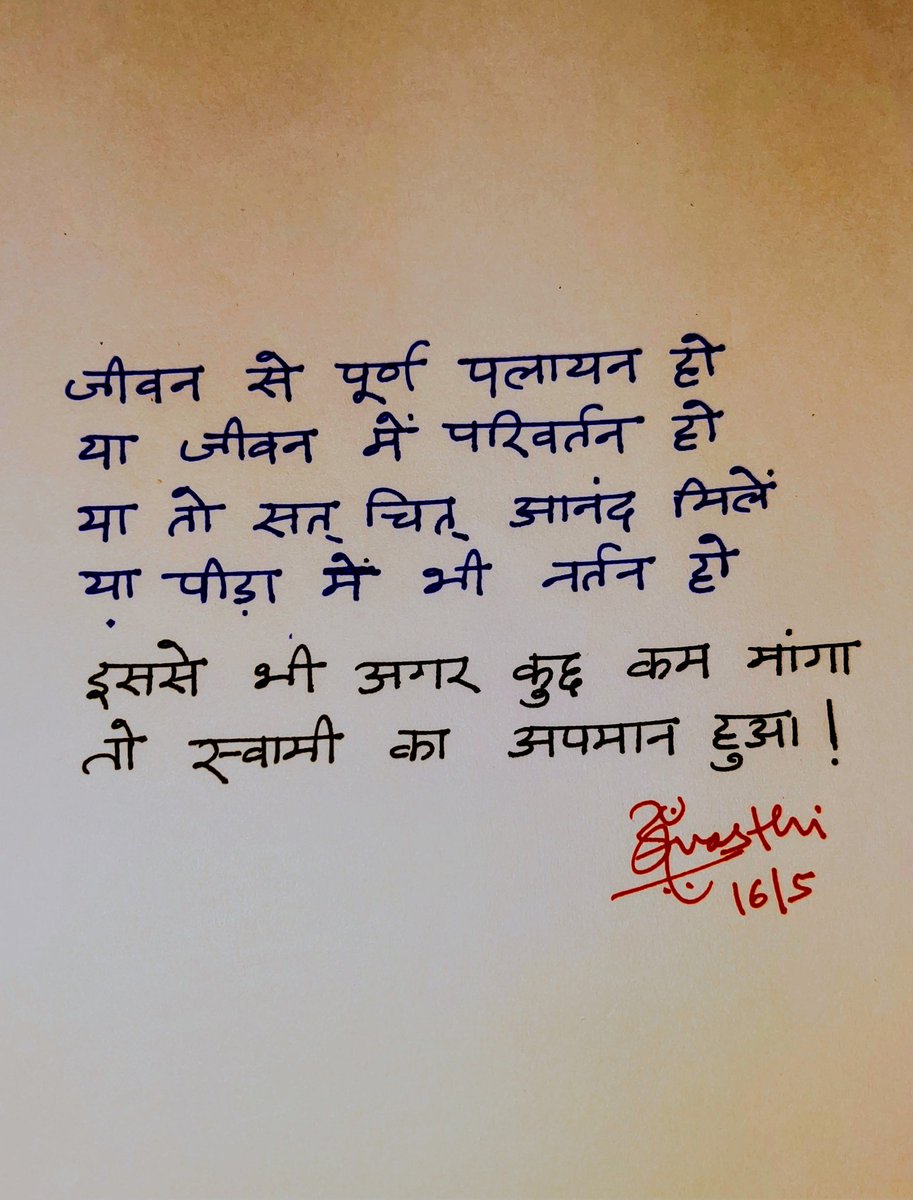 जीवन से पूर्ण पलायन हो
या जीवन में परिवर्तन हो
या तो सत् चित् आनंद मिलें
या पीड़ा में भी नर्तन हो
इससे भी अगर कुछ कम मांगा
तो स्वामी का अपमान हुआ!
16/5